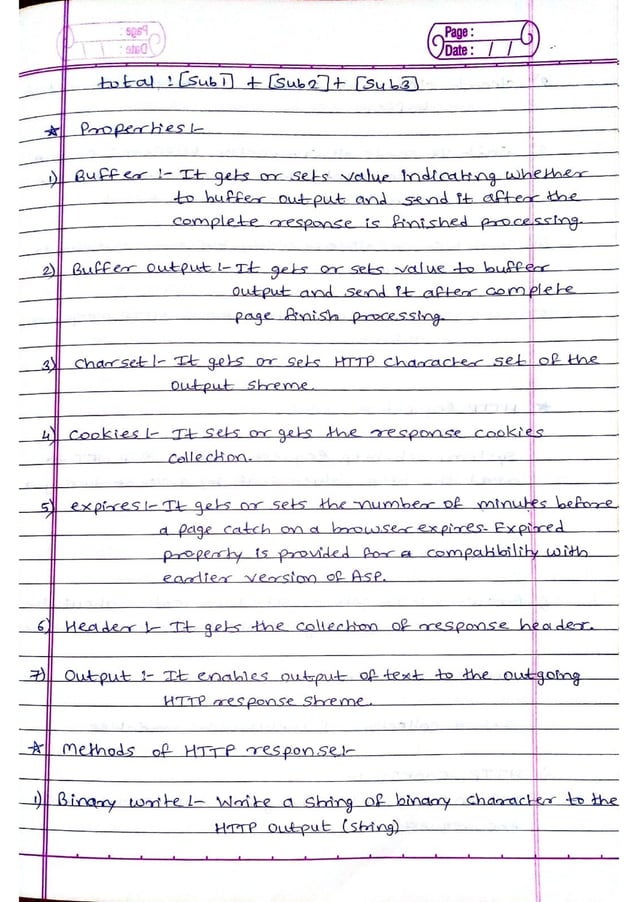 Page :
Date : / /
total : [Sub1] + [Sub2] + [Sub3]
☆ Properties :-
1) Buffer :- It gets or sets value indicating whether
to buffer output and send it after the
complete response is finished processing.
2) Buffer output :- It gets or sets value to buffer
output and send it after complete
page finish processing.
3) charset :- It gets or sets HTTP character set of the
output streme.
4) cookies :- It sets or gets the response cookies
collection.
5) expires :- It gets or sets the number of minutes before
a page catch on a browser expires. Expired
property is provided for a compatibility with
earlier version of ASP.
6) Header :- It gets the collection of response header.
7) Output :- It enables output of text to the outgoing
HTTP response streme.
☆ Methods of HTTP response :-
1) Binary write :- Write a string of binary character to the
HTTP output (string)